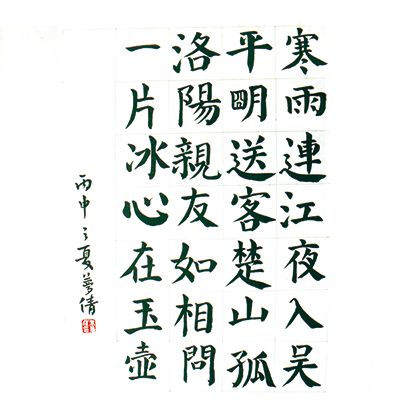 寒雨連江夜入吴
平明送客楚山孤
洛陽親友如相問
一片冰心在玉壺
丙申之夏夢倩